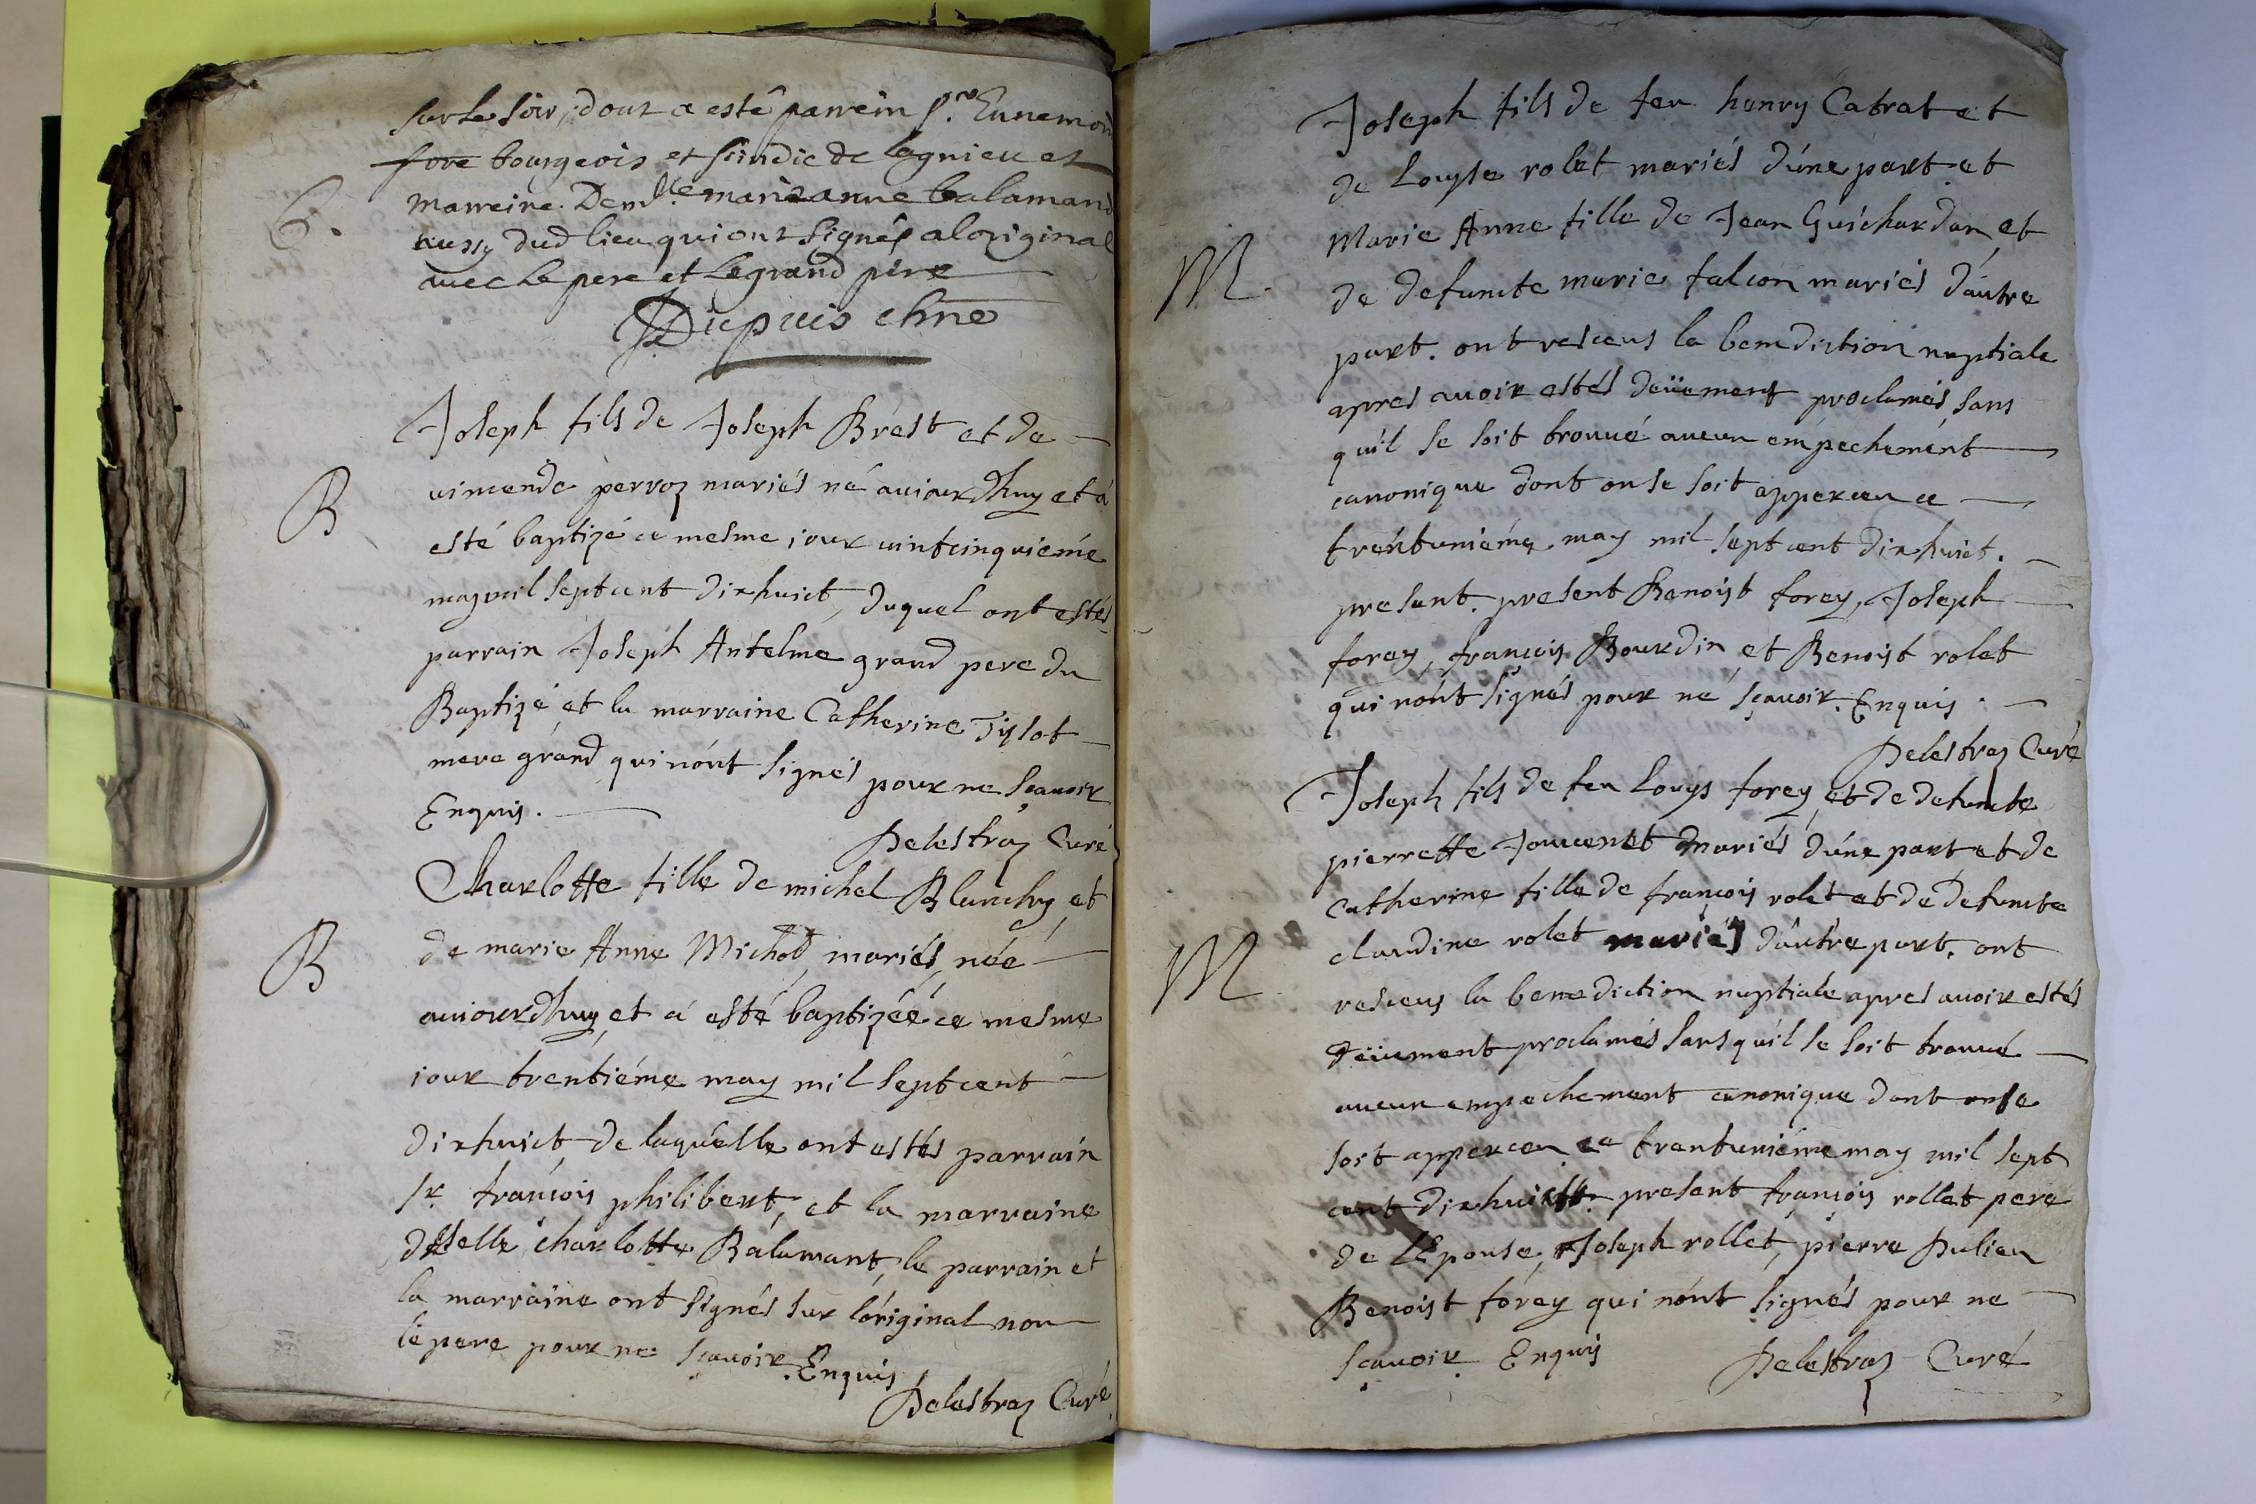 sur le soir, dont a esté parrein Sr. Ennemon
fore bourgeois et scindic de lagnieu et
B.
marreine Demlle marianne balamand
aussy dud lieu qui ont signés a loriginal
avec le pere et le grand père
Dupuis chne
Joseph fils de Joseph Brest et de
B
vimende perroz mariés né auiourdhuy et á
esté baptizé ce mesme iour vintcinquiéme
may mil septcent dixhuict, duquel ont estés
parrain Joseph Antelme grand pere du
Baptizé et la marraine Catherine Tislot
mere grand qui nónt signés pour ne sçauoir
Enquis.
Delestraz Curé
Charlotte fille de michel Blanchy et
B
de marie Anne Michod, mariés, née
auiourdhuy et á esté baptizéé ce mesme
iour trentiéme may mil septcent
dixhuict, de laquelle ont estés parrain
sr. francois philibert, et la marraine
dsselle charlotte Balamant, le parrain et
la marraine ont signés sur lóriginal non
le pere pour ne sçauoir. Enquis
Delestraz Curé.
Joseph fils de feu henry Catrat et
de Louyse rolet mariés dúne part et
Marie Anne fille de Jean Guichardan et
M.
de defuncte marie falcon mariés dáutre
part. ont resceus la benediction nuptiale
apres auoir estés deüement proclamés sans
quíl se soit trouué aucun empechemént
canonique dont on se soit apperceu ce
trentuniéme may mil septcent dixhuict.
present. present Benoist forey, Joseph
forey, françois Bourdin et Benoist rolet
qui nónt signés pour ne sçauoir. Enquis.
Delestraz Curé
Joseph fils de feu Louys forey et de defuncte
pierrette Jouuenet mariés dúne part et de
Catherine fille de françois rolet et de defuncte
M.
claudine rolet mariés dáutre part. ont
resceus la benediction nuptiale apres auoir estés
deüement proclamés sans quíl se soit trouué
aucun empechement canonique dont on se
soit apperceu ce trentuniéme may mil sept
cent dixhuict. present françois rollet pere
de lEpouse, Joseph rollet, pierre Dulieu
Benoist forey qui nónt signés pour ne
sçauoir. Enquis
Delestraz Curé